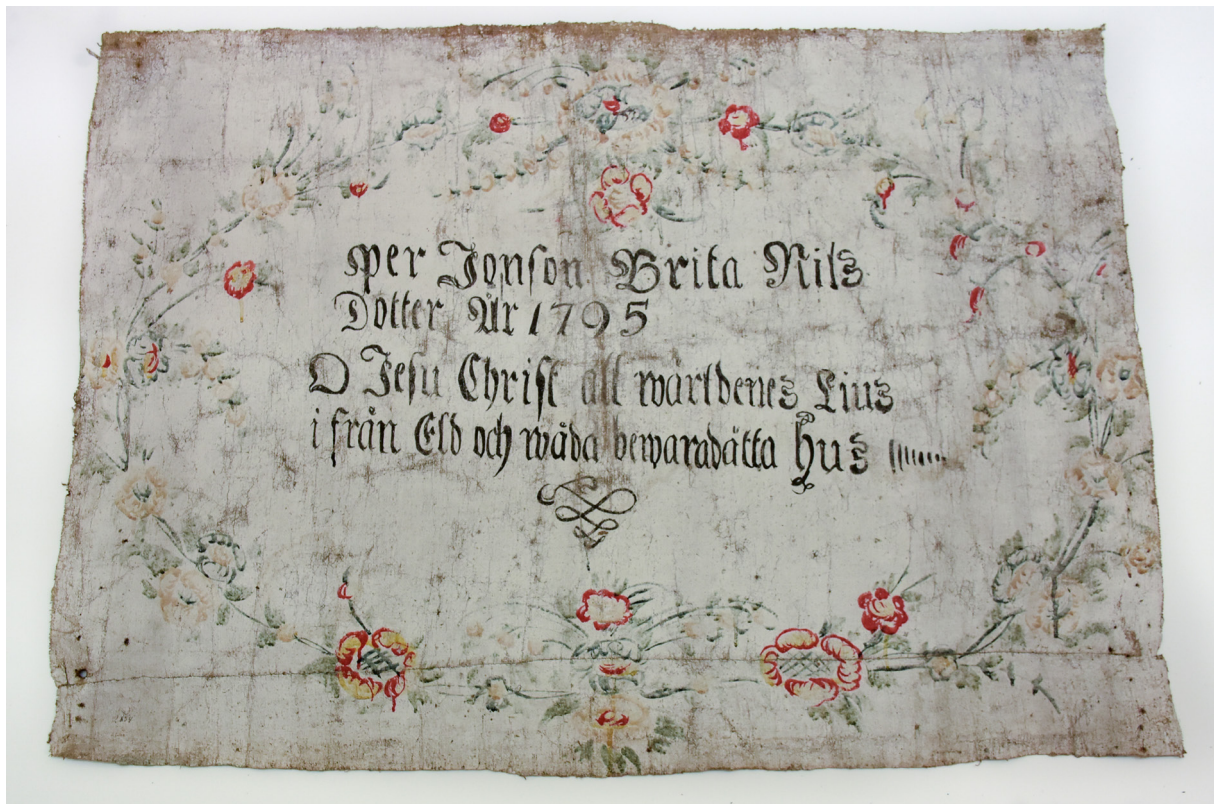 Per Jonson Brita Nils
Dotter År 1795
O Jesu Christ all wärldenes Lius
i från Eld och wåda bewaradätta hus